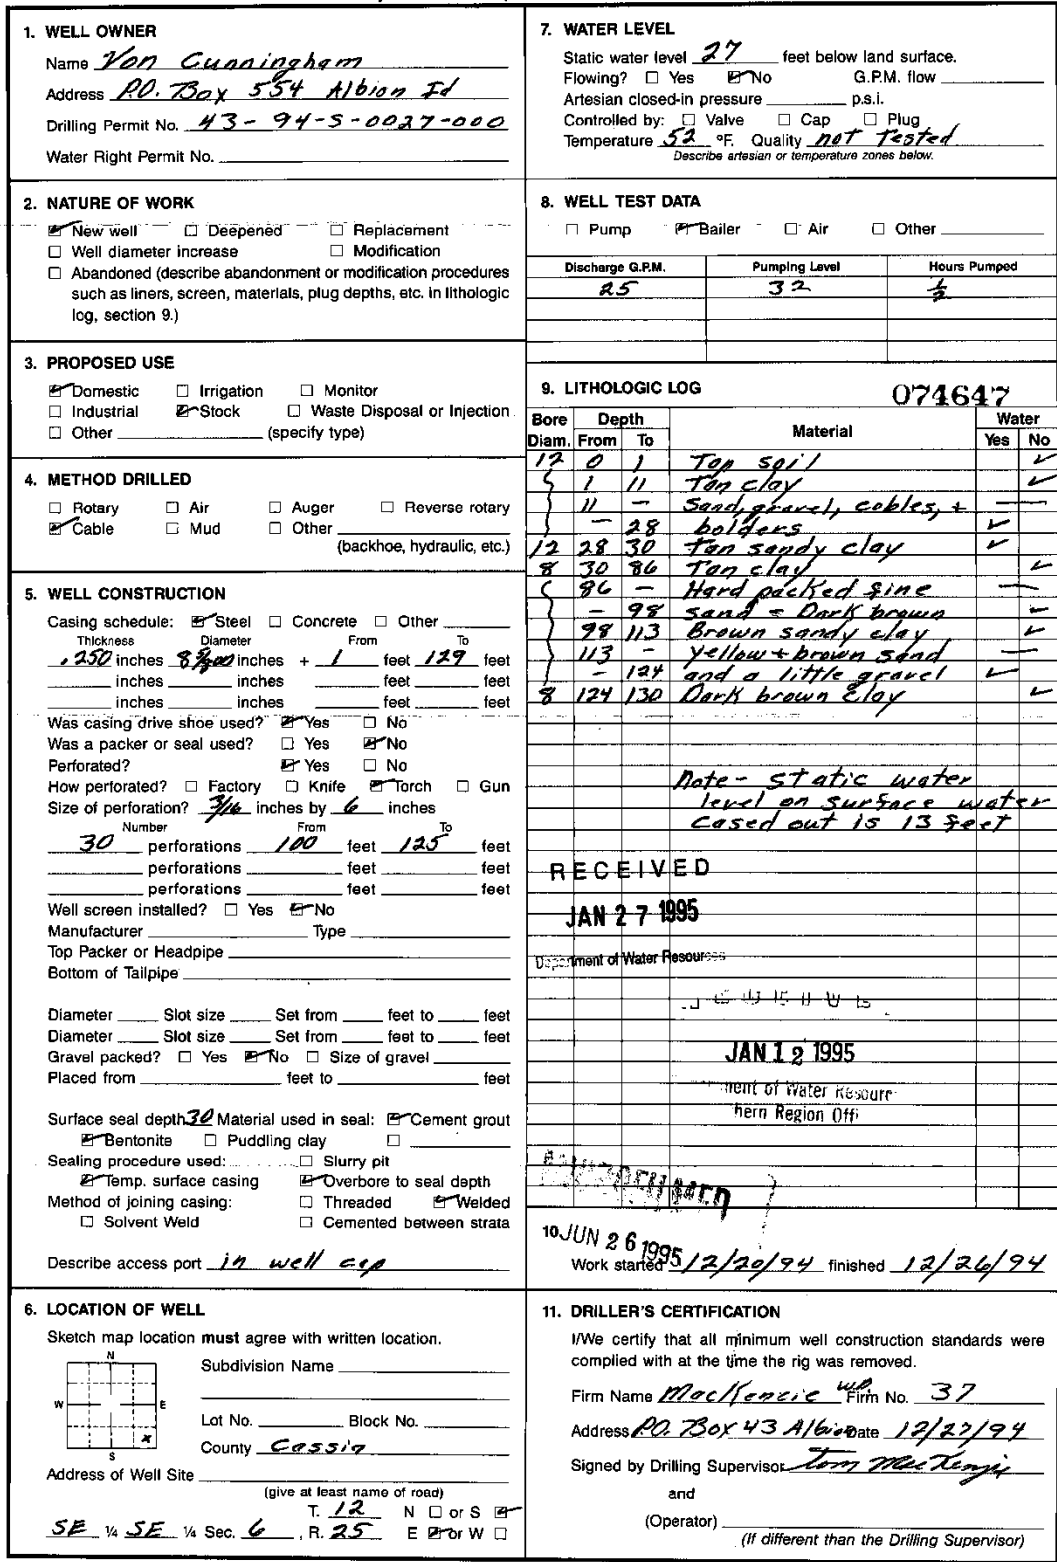 1. WELL OWNER
Name Von Cunningham
Address P.O. Box 554 Albion Id
Drilling Permit No. 43-94-S-0027-000
Water Right Permit No.
2. NATURE OF WORK
New well Deepened Replacement
Well diameter increase Modification
Abandoned (describe abandonment or modification procedures
such as liners, screen, materials, plug depths, etc. in lithologic
log, section 9.)
3. PROPOSED USE
Domestic Irrigation Monitor
Industrial Stock Waste Disposal or Injection
Other (specify type)
4. METHOD DRILLED
Rotary Air Auger Reverse rotary
Cable Mud Other
(backhoe, hydraulic, etc.)
5. WELL CONSTRUCTION
Casing schedule: Steel Concrete Other
Thickness Diameter From To
.250 inches 8 inches + 1 feet 129 feet
inches inches feet feet
inches inches feet feet
Was casing drive shoe used? Yes No
Was a packer or seal used? Yes No
Perforated? Yes No
How perforated? Factory Knife Torch Gun
Size of perforation? 3/16 inches by 6 inches
Number From To
30 perforations 100 feet 125 feet
perforations feet feet
perforations feet feet
Well screen installed? Yes No
Manufacturer Type
Top Packer or Headpipe
Bottom of Tailpipe
Diameter Slot size Set from feet to feet
Diameter Slot size Set from feet to feet
Gravel packed? Yes No Size of gravel
Placed from feet to feet
Surface seal depth 30 Material used in seal: Cement grout
Bentonite Puddling clay
Sealing procedure used: Slurry pit
Temp. surface casing Overbore to seal depth
Method of joining casing: Threaded Welded
Solvent Weld Cemented between strata
Describe access port in well cap
6. LOCATION OF WELL
Sketch map location must agree with written location.
N
Subdivision Name
W E
x
S
Lot No. Block No.
County Cassia
Address of Well Site
(give at least name of road)
T. 12 N or S
SE ¼ SE ¼ Sec. 6, R. 25 E or W
7. WATER LEVEL
Static water level 27 feet below land surface.
Flowing? Yes No G.P.M. flow
Artesian closed-in pressure p.s.i.
Controlled by: Valve Cap Plug
Temperature 52 °F. Quality not Tested
Describe artesian or temperature zones below.
8. WELL TEST DATA
Pump Bailer Air Other
Discharge G.P.M. Pumping Level Hours Pumped
25 32 ½
9. LITHOLOGIC LOG 074647
Bore Depth Material Water
Diam. From To Yes No
12 0 1 Top soil ✓
1 11 Tan clay ✓
11 - Sand, gravel, cobles, +
- 28 bolders ✓
12 28 30 Tan sandy clay ✓
8 30 86 Tan clay ✓
86 - Hard packed fine
- 98 sand = Dark brown ✓
98 113 Brown sandy clay ✓
113 - yellow + brown sand
- 124 and a little gravel ✓
8 124 130 Dark brown clay ✓
Note - static water
level on surface water
cased out is 13 feet
RECEIVED
JAN 27 1995
Department of Water Resources
JAN 12 1995
ment of Water Resour
hern Region Offi
JUN 26 1995
10.
Work started 12/20/94 finished 12/26/94
11. DRILLER'S CERTIFICATION
I/We certify that all minimum well construction standards were
complied with at the time the rig was removed.
Firm Name MacKenzie W.D. Firm No. 37
Address P.O. Box 43 Albion Date 12/27/94
Signed by Drilling Supervisor Tom MacKenzie
and
(Operator)
(If different than the Drilling Supervisor)